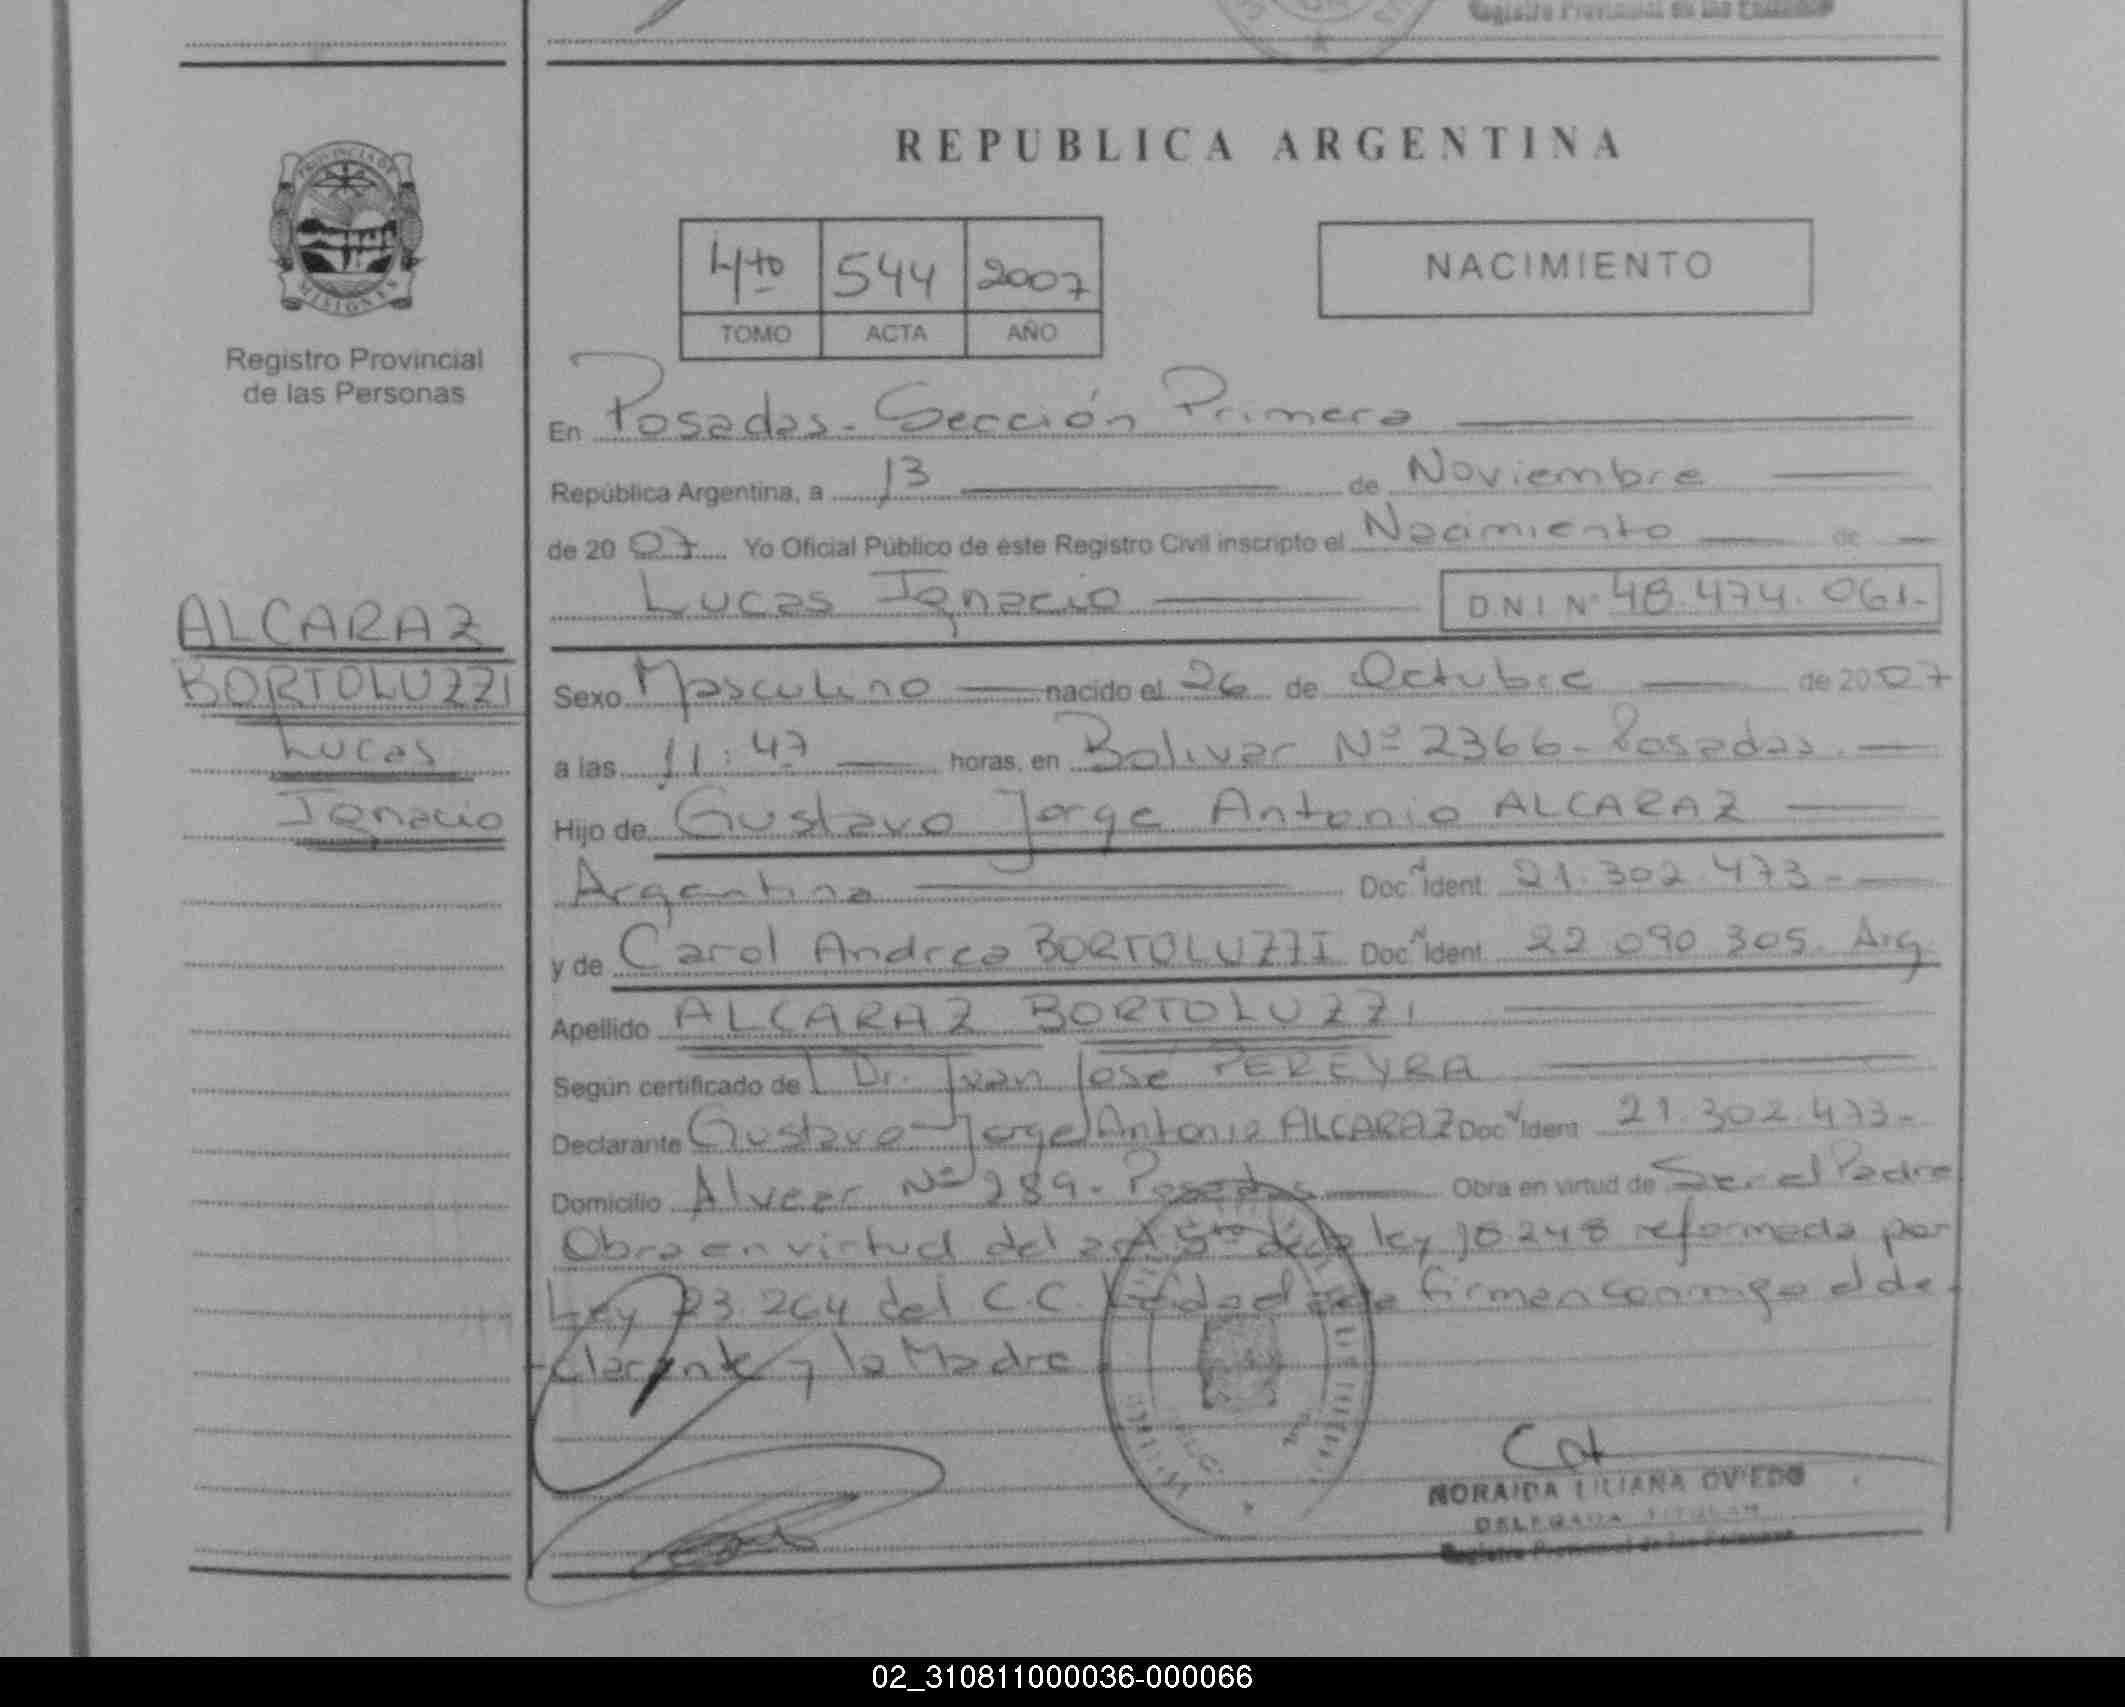 Registro Provincial de las Personas
REPUBLICA ARGENTINA
PROVINCIA DE
MISIONES
Registro Provincial
de las Personas
4to 544 2007
TOMO ACTA AÑO
NACIMIENTO
En Posadas - Sección Primera
República Argentina, a 13 de Noviembre
de 20 07 Yo Oficial Público de este Registro Civil inscripto el Nacimiento de
Lucas Ignacio DNI Nº 48.474.061.-
ALCARAZ
BORTOLUZZI
Lucas
Ignacio
Sexo Masculino nacido el 26 de Octubre de 2007
a las 11:47 horas, en Bolivar Nº 2366 - Posadas.
Hijo de Gustavo Jorge Antonio ALCARAZ
Argentina Doc. Ident. 21.302.473-
y de Carol Andrea BORTOLUZZI Doc. Ident. 22 090 305. Arg
Apellido ALCARAZ BORTOLUZZI
Según certificado de l Dr. Juan José PEREYRA
Declarante Gustavo Jorge Antonio ALCARAZ Doc. Ident. 21.302.473-
Domicilio Alvear Nº 289 - Posadas Obra en virtud de Ser el Padre
Obra en virtud del art 5to de la ley 18248 reformada por
Ley 23.264 del C.C. firman conmigo el de-
-clarante y la Madre
NORAIDA LILIANA OVIEDO
DELEGADA TITULAR
Registro Provincial de las Personas
02_310811000036-000066